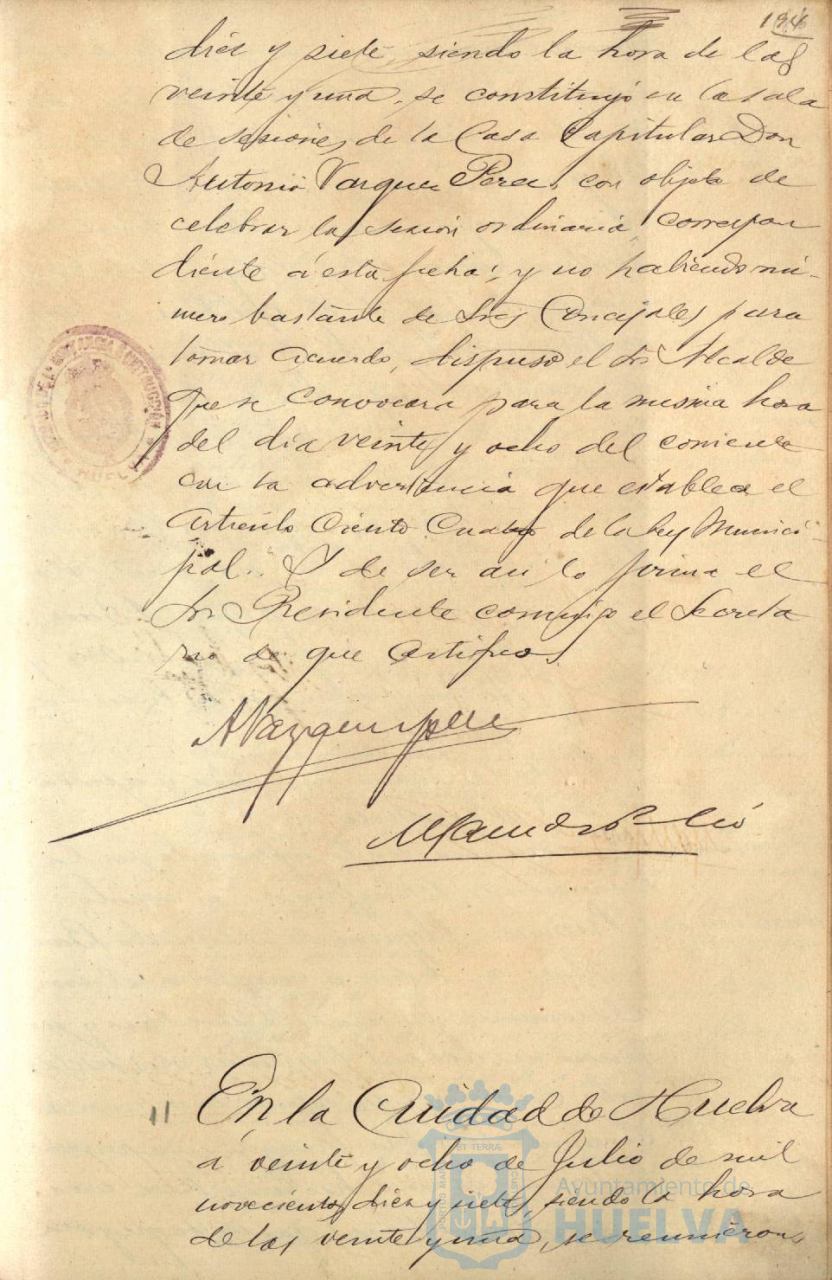 194
diez y siete, siendo la hora de las
veinte y una, se constituyó en la sala
de sesiones de la Casa Capitular Don
Antonio Vazquez Perez, con objeto de
celebrar la sesión ordinaria correspon
diente á esta fecha; y no habiendo nú-
mero bastante de Sres Concejales para
tomar acuerdo, dispuso el Sr Alcalde
que se convocara para la misma hora
del dia veinte y ocho del corriente
con la advertencia que establece el
Artículo Ciento Cuatro de la ley Munici-
pal. Y de ser asi lo firma el
Sr Presidente conmigo el Secreta
rio de que certifico
A Vazquez Perez
11 En la Ciudad de Huelva
á veinte y ocho de Julio de mil
novecientos diez y siete, siendo la hora
de las veinte y una, se reunieron
Ayuntamiento de
HUELVA